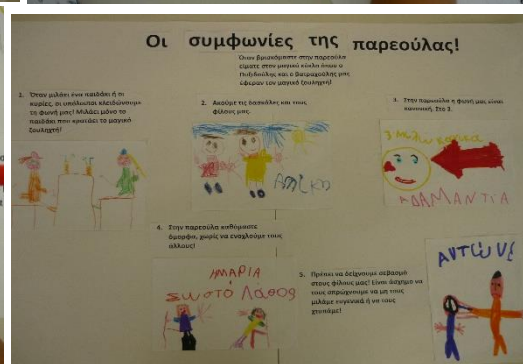 Οι συμφωνίες της παρεούλας!
Όταν βρισκόμαστε στην παρεούλα
είμαστε στον μαγικό κύκλο όπου ο
και ο βατραχούλης μας
έφεραν τον μαγικό ζουληχτή!
1. Όταν μιλάει ένα παιδάκι ή οι
κυρίες, οι υπόλοιποι κλειδώνουμε
τη φωνή μας! Μιλάει μόνο το
παιδάκι που κρατάει το μαγικό
ζουληχτή!
2. Ακούμε τις δασκάλες και τους
φίλους μας.
3. Στην παρεούλα η φωνή μας είναι
κανονική. Στο 3.
ΑΔΑΜΑΝΤΙΑ
4. Στην παρεούλα καθόμαστε
όμορφα, χωρίς να ενοχλούμε τους
άλλους!
ΜΑΡΙΑ
Σωστό Λάθος
5. Πρέπει να δείχνουμε σεβασμό
στους φίλους μας! Είναι άσχημο να
τους σπρώχνουμε να μη τους
μιλάμε ευγενικά ή να τους
χτυπάμε!